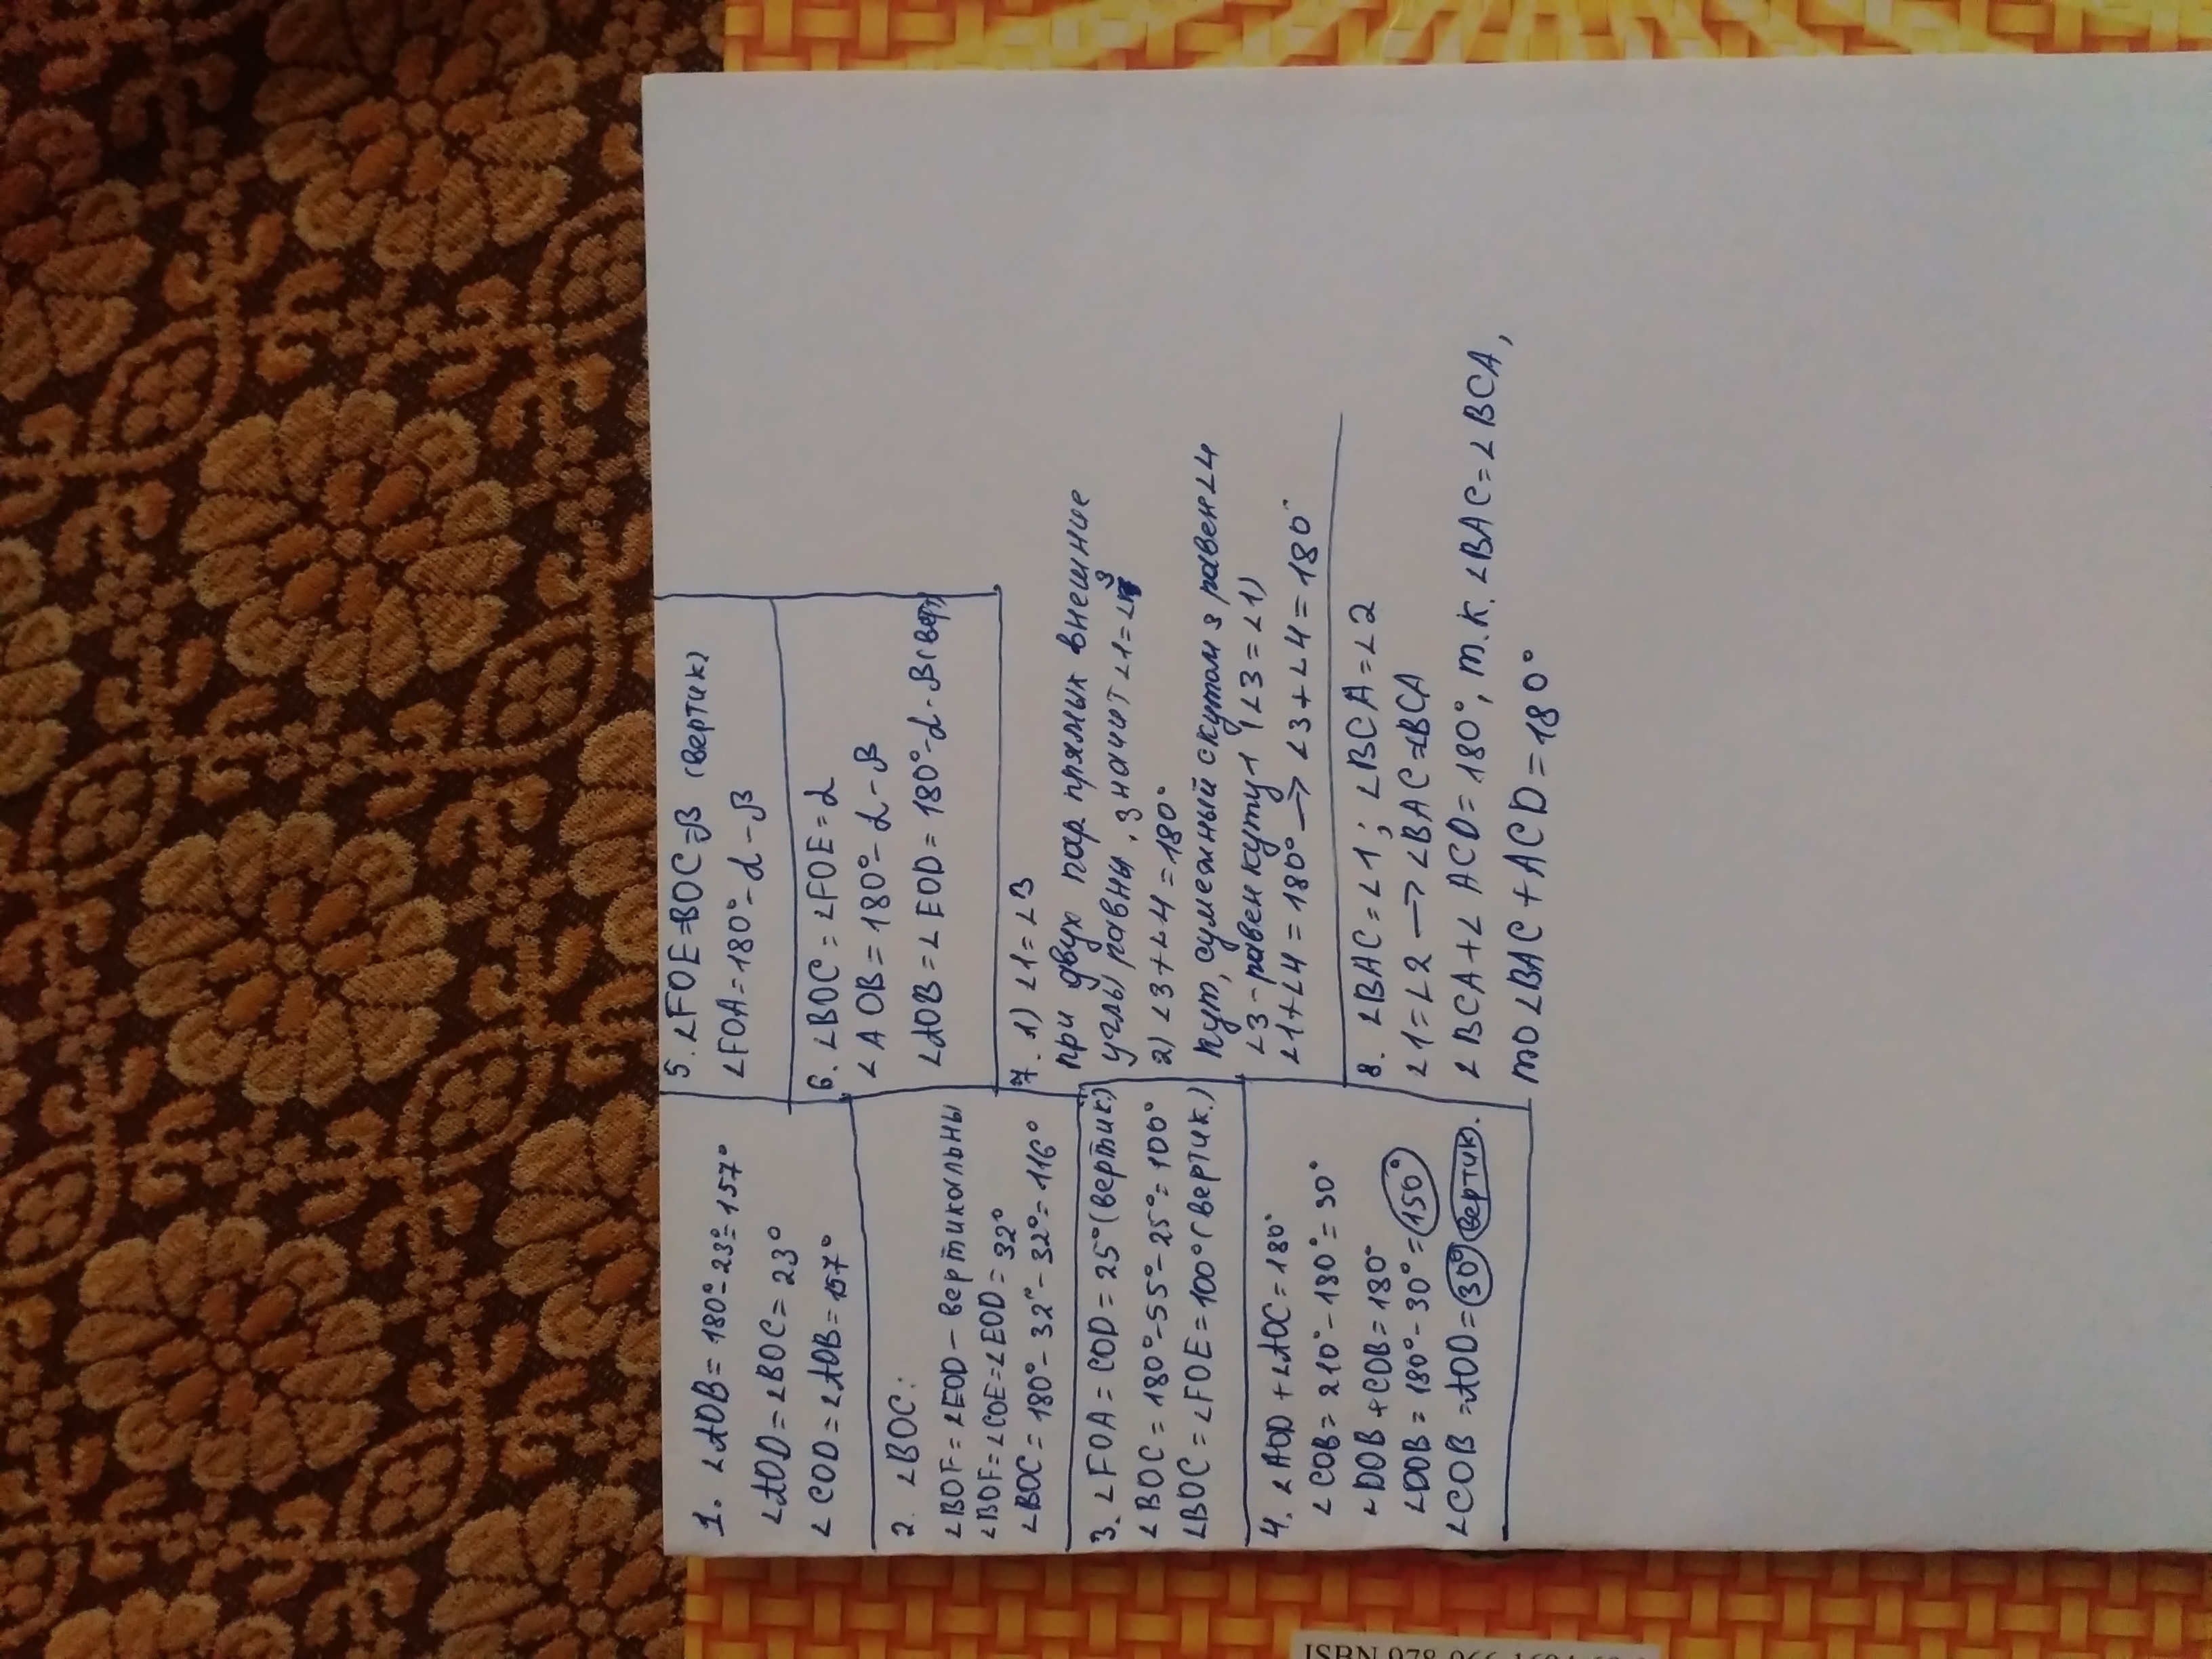 1. ∠AOB = 180° - 23° = 157°
∠AOD = ∠BOC = 23°
∠COD = ∠AOB = 157°
2. ∠BOC:
∠BOF = ∠EOD - вертикальны
∠BOF = ∠COE = ∠EOD = 32°
∠BOC = 180° - 32° - 32° = 116°
3. ∠FOA = COD = 25° (вертик)
∠BOC = 180° - 55° - 25° = 100°
∠BOC = ∠FOE = 100° (вертик.)
4. ∠AOD + ∠AOC = 180°
∠COB = 210° - 180° = 30°
∠DOB + COB = 180°
∠DOB = 180° - 30° = 150°
∠COB = AOD = 30° вертик.
5. ∠FOE = BOC = β (вертик)
∠FOA = 180° - α - β
6. ∠BOC = ∠FOE = α
∠AOB = 180° - α - β
∠AOB = ∠EOD = 180° - α - β (верт)
7. 1) ∠1 = ∠3
при двух пар прямых внешние
углы равны, значит ∠1 = ∠3
2) ∠3 + ∠4 = 180°
Кут, сумежный с кутом 3 равен ∠4
∠3 - равен куту 1 (∠3 = ∠1)
∠1 + ∠4 = 180° → ∠3 + ∠4 = 180°
8. ∠BAC = ∠1; ∠BCA = ∠2
∠1 = ∠2 → ∠BAC = ∠BCA
∠BCA + ∠ACD = 180°, т.к. ∠BAC = ∠BCA,
то ∠BAC + ACD = 180°